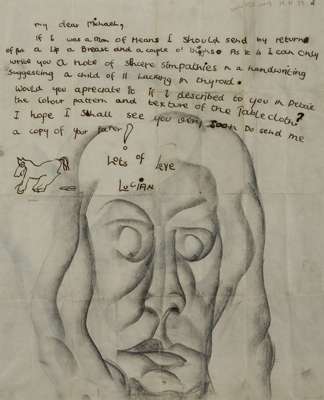 my dear Michael,
If I was a Man of Means I should send my return
of a Lip a Breast and a couple of As it is I can only
write you a note of sincere simpathies in a handwriting
suggesting a child of lacking in thyroid.
Would you apreciate it if I described to you in Detail
the colour pattern and texture of the table cloth?
I hope I shall see you very soon Do send me
a copy of your paper!
Lots of love
Lucian